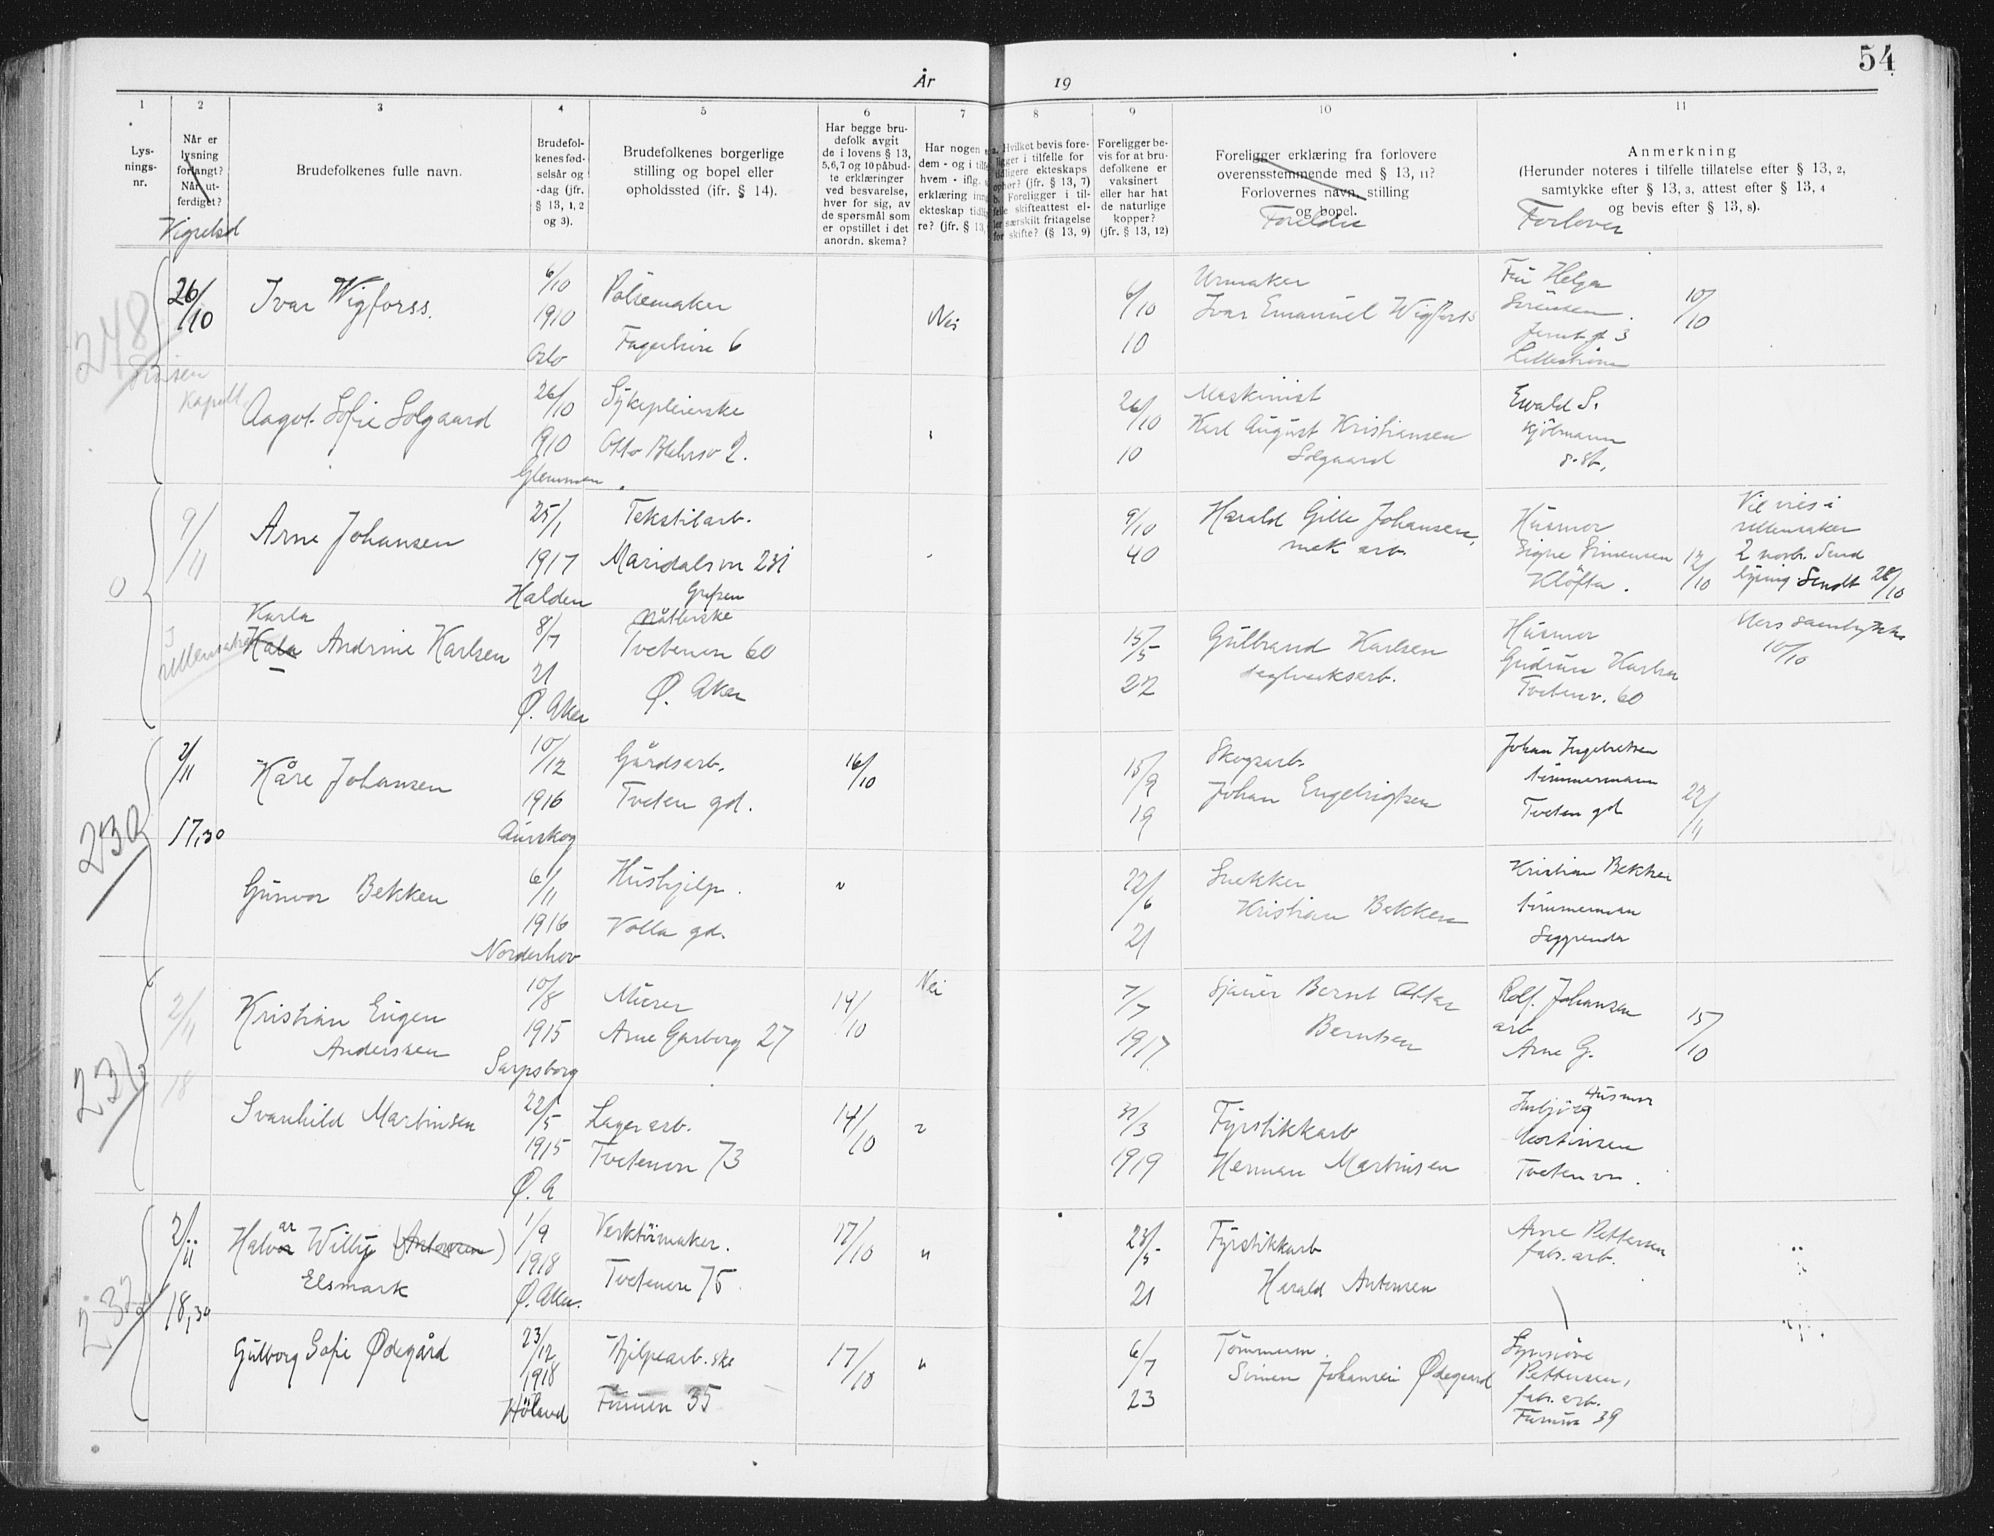 54
År
19
1 2 3 4 5 6 7 8 9 10 11
Lys-
nings-
nr.
Når er
lysning
forlangt?
Når ut-
ferdiget?
Vigselsd
Brudefolkenes fulle navn.
Brudefol-
kenes fød-
selsår og
-dag (jfr.
§ 13, 1, 2
og 3).
Brudefolkenes borgerlige
stilling og bopel eller
opholdssted (jfr. § 14).
Har begge bru-
defolk avgit
de i lovens § 13,
5,6,7 og 10 påbud-
te erklæringer
ved besvarelse,
hver for sig, av
de spørsmål som
er opstillet i det
anordn. skema?
Har nogen
dem - og i tilf
hvem - iflg.
erklæring inn
ekteskap tidl
re? (jfr. § 13,
a. Hvilket bevis fore-
ligger i tilfelle for
tidligere ekteskaps
ophør? (jfr. § 13, 7)
b. Foreligger i til-
felle skifteattest el-
ler særskilt fritagelse
for skifte? (§ 13, 9)
Foreligger be-
vis for at bru-
defolkene er
vaksinert
eller har hat
de naturlige
kopper?
(jfr. § 13, 12)
Foreligger erklæring fra forlovere
overensstemmende med § 13, 11?
Forlovernes navn, stilling
og bopel.
Foreldre
Anmerkning
(Herunder noteres i tilfelle tillatelse efter § 13, 2,
samtykke efter § 13, 3, attest efter § 13, 4
og bevis efter § 13, 8).
Forlover
248
26/10
Ivar Wigforss.
6/10
1910
Oslo
Pølsemaker
Fagerheim 6
Nei
6/10
10
Urmaker
Ivar Emanuel Wigforss
Fru Helga
Sørensen.
3
Lillestrøm
10/10
Kapell
Aagot Sofie Solgaard
26/10
1910
Glemmen
Sykepleierske
Otto Blehrsv 2.
"
26/10
10
Maskinist
Karl August Kristiansen
Solgaard
Ewald S.
Kjöbmann
s.st.
0
9/11
Arne Johansen
25/1
1917
Halden
Tekstilarb.
Maridalsvn 231
Grefsen
"
9/10
40
Harald Gille Johansen,
mek arb.
Husmor
Signe Simensen
Kløfta.
12/10
Vil vies i
Ullensaker
2 norb. Send
lysning Sendt 28/10
I
Ullensaker
Karla
Kala Andrine Karlsen
8/7
21
Ø. Aker
Tvetenvn 60
Ø. Aker
15/5
22
Gulbrand Karlsen
teglverksarb.
Husmor
Gudrun Karlsen
Tvetenv. 60
Mors samtykke
10/10
230
2/11
17,30
Kåre Johansen
10/12
1916
Aurskog
Gårdsarb.
Tveten gd.
16/10
15/9
19
Skogsarb.
Johan Engebrigtsen
Johan Ingebretsen
tömmermann
Tveten gd
22/11
Gunvor Bekken
6/11
1916
Norderhov
Hushjelp.
Volla gd.
"
22/6
21
Snekker
Kristian Bekken
Kristian Bekken
tömmerman
231
2/11
18
Kristian Eugen
Anderssen
10/8
1915
Sarpsborg
Murer
Arne Garborg 27
14/10
Nei
7/7
1917.
Sjauer Bernt Otto
Berntsen
Rolf Johansen
arb
Arne G.
15/10
Svanhild Martinsen
22/5
1915
Ø. A
Lagerarb.
Tvetenvn 73
14/10
"
31/3
1919
Fyrstikkarb
Herman Martinsen
Husmor
Inbjörg
Martinsen
Tveten vn.
232
2/11
18,30
ar
Halvor Willy (Antonsen)
Elsmark
1/9
1918
Ø. Aker.
Verktöimaker.
Tvetenvn 75
17/10
"
23/5
21
Fyrstikkarb
Harald Antonsen
Arne Pettersen
fabr. arb.
Gulborg Sofie Ødegård
23/12
1918
Höland
Hjelpearb.ske
Furuvn 35
17/10
"
6/7
23
Tömmerm.
Simen Johansen Ødegaard
Synnöve
Pettersen,
fabr. arb.
Furuvn 39